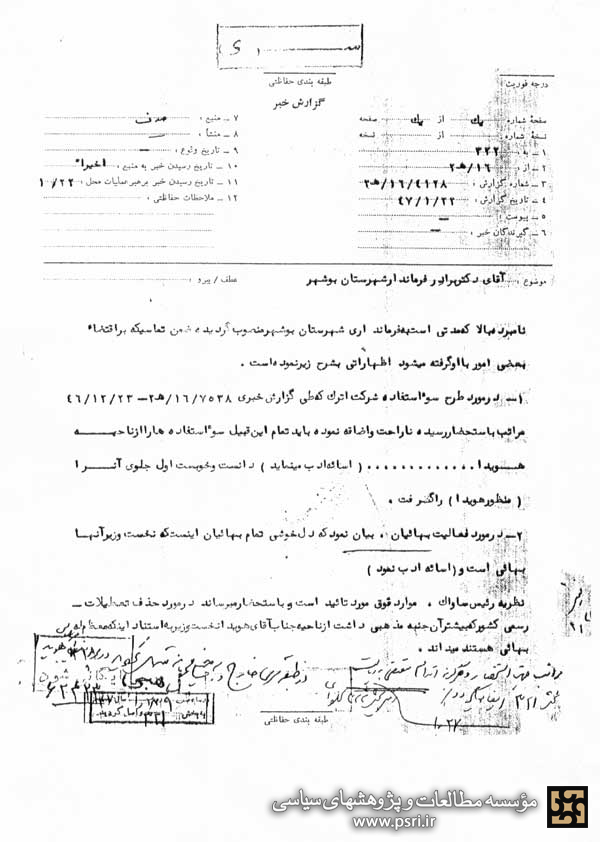 سری
طبقه بندی حفاظتی
گزارش خبر
درجه فوریت
صفحهٔ شماره یک از یک صفحه
نسخهٔ شماره از نسخه
۱ ـ به : ۳۳۲
۲ ـ از : ۱۶/هـ۲
۳ ـ شماره گزارش : ۴۱۲۸/۱۶/هـ۲
۴ ـ تاریخ گزارش : ۴۷/۱/۲۲
۵ ـ پیوست :
۶ ـ گیرندگان خبر :
۷ ـ منبع : صدف
۸ ـ منشأ :
۹ ـ تاریخ وقوع :
۱۰ ـ تاریخ رسیدن خبر به منبع : اخیرا"
۱۱ ـ تاریخ رسیدن خبر برهبر عملیات محل :
۱۲ ـ ملاحظات حفاظتی :
موضوع : آقای دکتر برادر فرماندار شهرستان بوشهر
عطف / پیرو :
نامبرده بالا که مدتی است به فرمانداری شهرستان بوشهر منصوب گردیده ضمن تماسیکه بر اقتضاء
بعضی امور با او گرفته میشود اظهاراتی بشرح زیر نموده است .
۱ـ در مورد طرح سوء استفاده شرکت اترک که طی گزارش خبری ۷۵۳۸/۱۶/هـ۲ـ ۴۶/۱۲/۲۳
مراتب باستحضار رسیده ناراحت و اضافه نموده باید تمام این قبیل سوء استفاده ها را از ناحیه
هویدا ............. ( اسائه ادب مینماید ) دانست و خوبست اول جلوی آنرا
( منظور هویدا ) را گرفت .
۲ـ در مورد فعالیت بهائیان ، بیان نمود که دلخوشی تمام بهائیان اینست که نخست وزیر آنها
بهائی است و ( اسائه ادب نمود )
نظریه رئیس ساواک . موارد فوق مورد تائید است و باستحضار میرساند در مورد حذف تعطیلات
رسمی کشور که بیشتر آن جنبه مذهبی داشت از ناحیه جناب آقای هویدا نخست وزیر به استناد اینکه معظم له
بهائی هستند میدانند .
طبقه بندی حفاظتی
مؤسسه مطالعات و پژوهشهای سیاسی
www.psri.ir